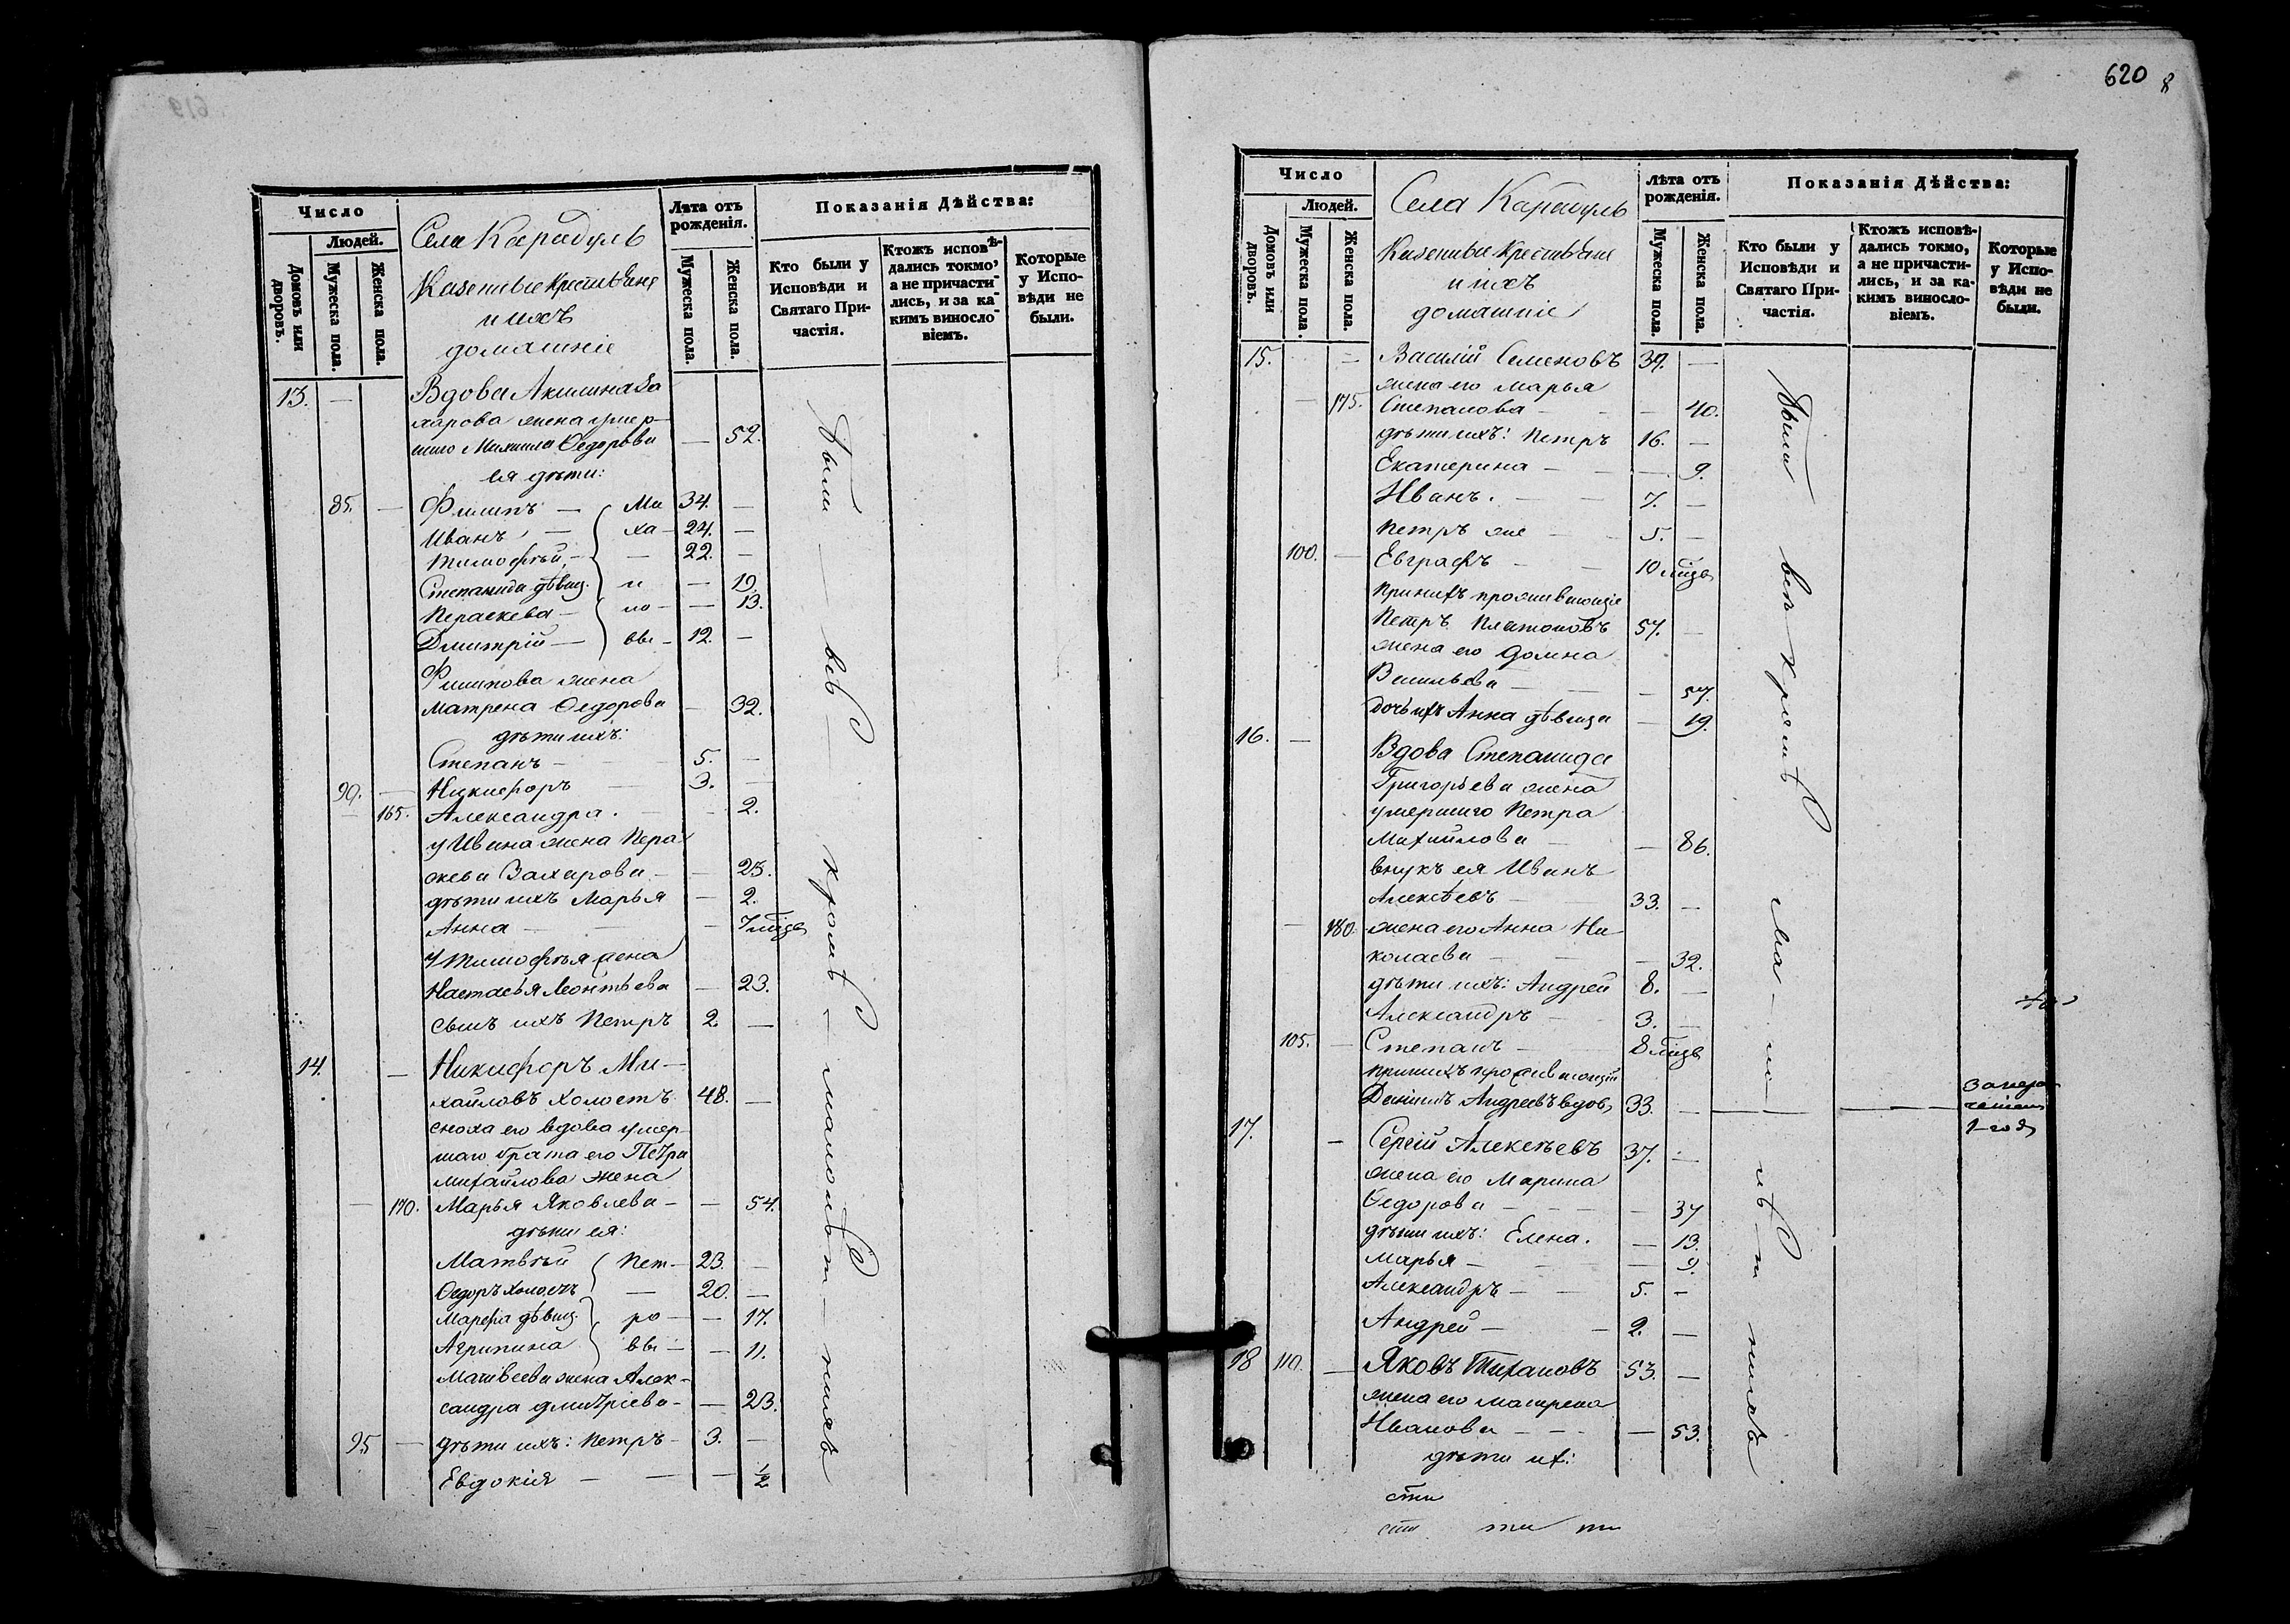 620
Число
Людей.
Домовъ или дворовъ.
Мужеска пола.
Женска пола.
Села Карабулъ
Казенные Крестьяне
и ихъ
домашніе
Лѣта отъ рожденія.
Мужеска пола.
Женска пола.
Показанія Дѣйства:
Кто были у Исповѣди и Святаго Причастія.
Ктожъ исповѣдались токмо, а не причастились, и за какимъ винословіемъ.
Которые у Исповѣди не были.
13. — Вдова Акилина За
харова жена умер
шаго Михаила Ѳедорова — 52.
ея дѣти:
85. — Филипъ — Ми 34. —
Иванъ, — ха — 24. —
Тимофѣй, — — 22. —
Степанида дѣвиц. и — 19.
Параскева — ло — — 13.
Дмитрій — вы — 12. —
Филипова жена
Матрена Ѳедорова — 32.
дѣти ихъ:
Степанъ — 5. —
90. — Никифоръ — 3. —
165. Александра. — 2.
у Ивана жена Пара
скева Захарова — — 25.
дѣти ихъ Марья — 2.
Анна — — 7 мѣсяц
У Тимофѣя жена
Настасья Леонтьева — 23.
сынъ ихъ Петръ 2. —
14. — Никифоръ Ми—
хайловъ холостъ 48. —
сноха его вдова умер
шаго брата его Петра
Михайлова жена
— 170. Марья Яковлева — — 54.
дѣти ея:
Матвѣй Пет— 23. —
Ѳедоръ холостъ — 20. —
Марѳа дѣвиц. ро — — 17.
Агрипина вы — — 11.
Матвѣева жена Алек—
сандра Дмитріева — — 23.
95 — дѣти ихъ: Петръ — 3. —
Евдокія — — — 1/2
были — всѣ — кромѣ — малолѣт — нихъ
Число
Людей.
Домовъ или дворовъ.
Мужеска пола.
Женска пола.
Села Карабулъ
Казенные Крестьяне
и ихъ
домашніе
Лѣта отъ рожденія.
Мужеска пола.
Женска пола.
Показанія Дѣйства:
Кто были у Исповѣди и Святаго Причастія.
Ктожъ исповѣдались токмо, а не причастились, и за какимъ винословіемъ.
Которые у Исповѣди не были.
15. — Василій Семеновъ 39. —
жена его Марья
— 175. Степанова — — 40.
дѣти ихъ: Петръ 16. —
Екатерина — — 9.
Иванъ. — 7. —
Петръ же — 5. —
100. — Евграфъ — 10 мѣсяц
При нихъ проживающіе
Петръ Платоновъ 57. —
жена его Домна
Васильева — — 57.
дочь ихъ Анна дѣвица — 19.
16. — Вдова Степанида
Григорьева жена
умершаго Петра
Михайлова — — 86.
внукъ ея Иванъ
Алексѣевъ — 33. —
— 180. жена его Анна Ни
колаева — — 32.
дѣти ихъ: Андрей 8. —
Александръ — 3. —
105. — Степанъ — 8 мѣсяц
при нихъ проживающій
Даніилъ Андреевъ вдов. 33. —
1 год
17. — Сергій Алексѣевъ 37. —
жена его Марина
Ѳедорова — — 37
дѣти ихъ: Елена. — 13.
Марья — — 9.
Александръ — 5. —
Андрей — — 2. —
18 110. — Яковъ Тихановъ 53. —
жена его Матрена
Иванова — — 53.
дѣти их:
были всѣ кромѣ мало — лѣ — т нихъ
сти
сти ти ти